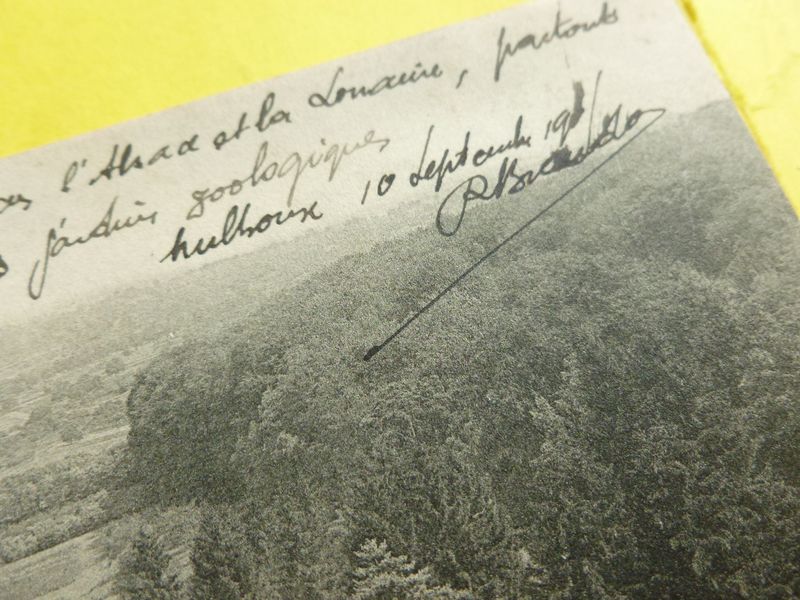 l'Alsace et la Lorraine, partouts
jardins zoologiques
Mulhoux 10 Septembre